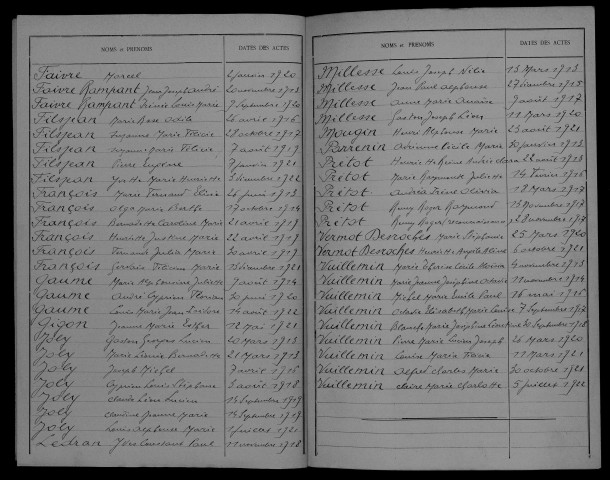 NOMS et PRÉNOMS DATES DES ACTES
Faivre Marcel 2 Janvier 1920
Faivre Rampant Jean Joseph André 20 novembre 1913
Faivre Rampant Désiré Louis Marie 7 Septembre 1920
Filsjean Marie Rose Odile 26 avril 1916
Filsjean Suzanne Marie 28 octobre 1917
Filsjean Marie 7 août 1919
Filsjean Pierre Eugène Janvier 1921
Filsjean Yvette Marie Henriette 3 décembre 1922
François Marie Fernand 24 juin 1913
François Olga Marie Berthe 17 octobre 1914
François Bernadette Caroline Marie 21 avril 1917
François Henriette Justine Marie 22 avril 1917
François Fernand Julien Marie 30 avril 1917
François Marie décembre 1921
Gaume Marie Juliette 7 août 1914
Gaume André Cyprien Florian 30 juin 1920
Gaume Louis Marie Jean Isidore 14 août 1922
Gigon Jeanne Marie 12 Mai 1921
Joly Gaston Georges Lucien 20 Mars 1913
Joly Marie Louise Bernadette 21 Mars 1913
Joly Joseph Michel 7 avril 1916
Joly Cyprien Louis Stéphane 3 août 1918
Joly Claude Lucien 13 Septembre 1919
Joly Claudine Jeanne Marie 13 Septembre 1919
Joly Louis Alphonse Marie 1921
Ledran Yves Constant Paul 11 novembre 1918
NOMS et PRÉNOMS DATES DES ACTES
Millesse Louis Joseph 13 Mars 1913
Millesse Jean Paul Alphonse 27 Février 1915
Millesse Anne Marie 7 août 1917
Millesse Gaston Joseph Léon 11 Mars 1920
Mougin Henri Alphonse Marie 25 août 1921
Perrenin Adrienne Cécile Marie 30 janvier 1913
Prétot Henri 22 août 1913
Prétot Marie Raymonde Juliette 14 Février 1916
Prétot Andréa Irène Olivia 18 Mars 1917
Prétot Rémy Roger Raymond 13 Novembre 1917
Prétot Rémy Roger 28 novembre 1917
Vermot Desroches Marie Stéphanie 25 Mars 1920
Vermot Desroches Henriette Angèle 6 octobre 1921
Vuillemin Marie Cécile 4 novembre 1913
Vuillemin Marie Jeanne Joséphine 11 novembre 1914
Vuillemin Michel Marie Emile Paul 16 mai 1915
Vuillemin Elisabeth Marie Louise 7 Septembre 1917
Vuillemin Blanche Marie Joséphine 30 Septembre 1918
Vuillemin Pierre Marie Joseph 26 Mars 1920
Vuillemin Louise Marie 11 Mars 1921
Vuillemin Alfred Charles Marie 30 octobre 1921
Vuillemin Claire Marie Charlotte 5 juillet 1922